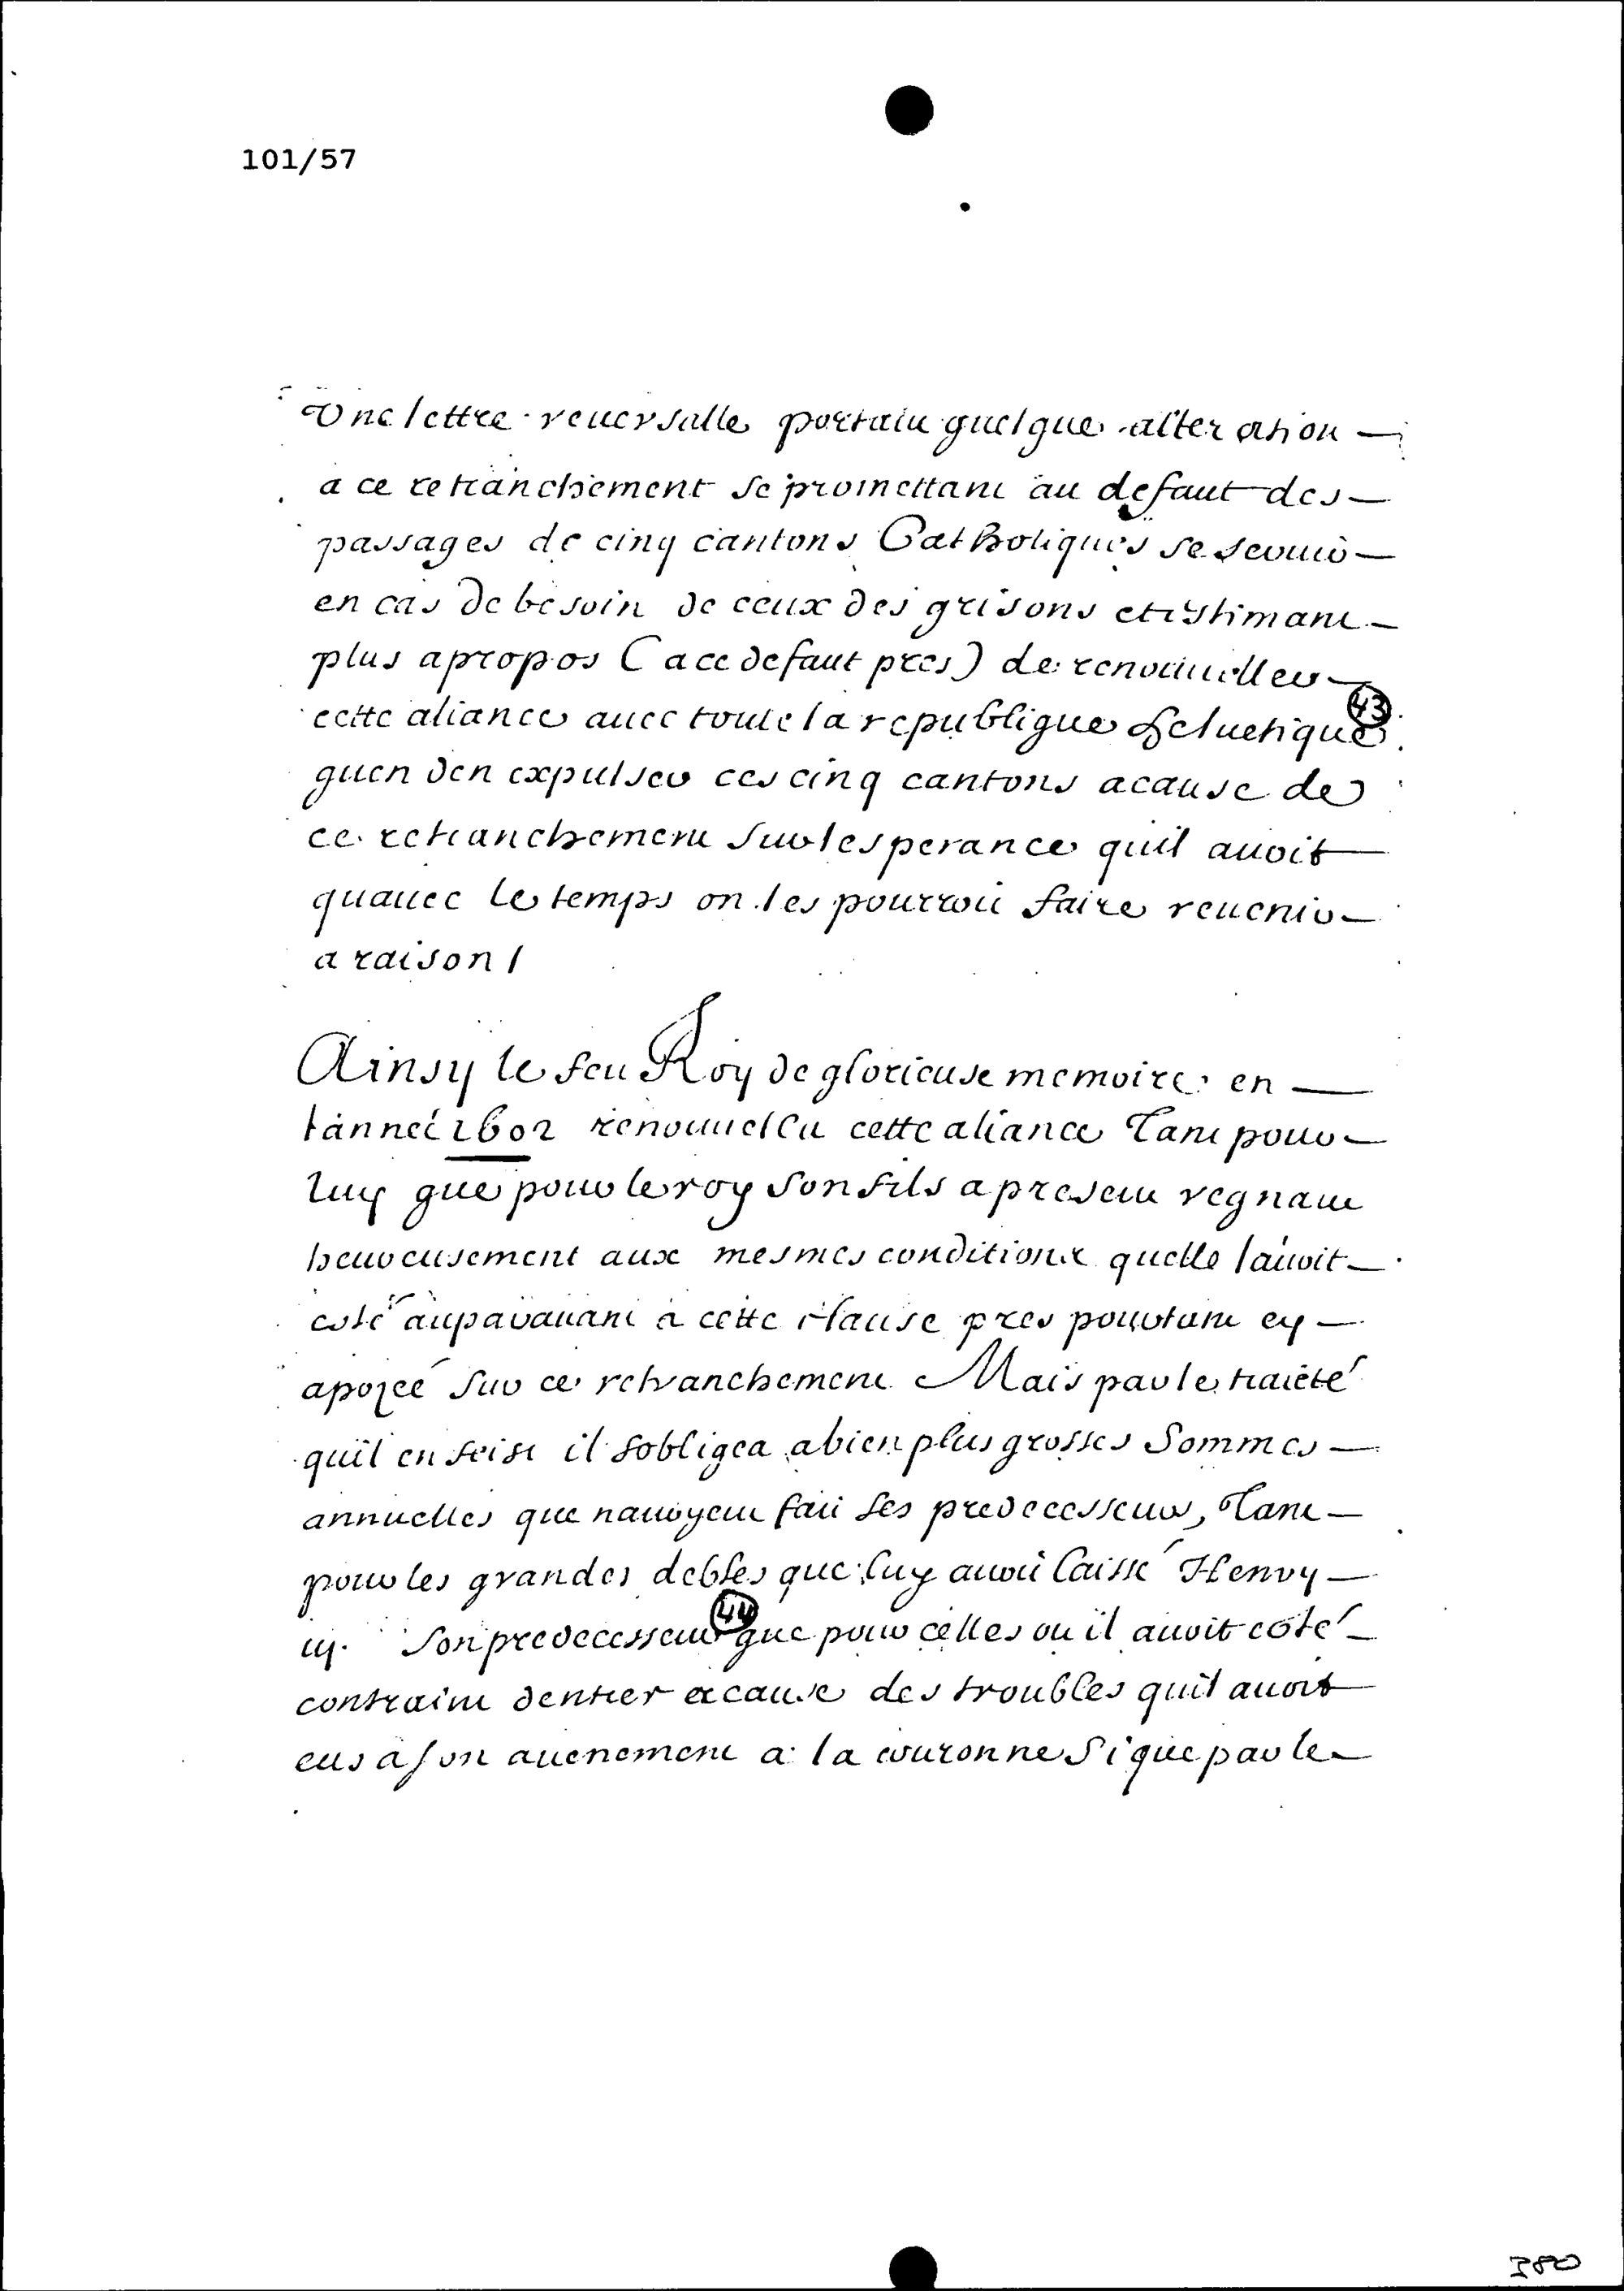 101/57
Une lettre reuersalle portant quelque alteration —
a ce retranchement se promettant au defaut des —
passages de cinq cantons Catholiques se seruir —
en cas de besoin de ceux des grisons et estimant —
plus apropos ( a ce defaut pres ) de renouueller —
cette aliance auec toute la republique heluetique 43
quen den expulser ces cinq cantons acause de
ce retranchement sur lesperance quil auoit —
quauec le temps on les pourroit faire reuenir —
a raison /
Ainsy le feu Roy de glorieuse memoire en —
lanneé 1602 renouuella cette aliance Tant pour —
luy que pour le roy son fils apresent regnant
heureusement aux mesmes conditions quelle lauoit —
esté aupárauant a cette clause pres pourtant ey —
apozeé sur ce retranchement Mais par le traicté
quil en feist il sobligea abien plus grosses Sommes —
annuelles que nauoyent fait ses predecesseurs, Tant —
pour les grandes debtes que luy auoit laissé Henry —
iij. Son predecesseur 44 que pour celles ou il auoit esté —
contraint dentrer acause des troubles quil auoit —
eus a son auenement a la couronne Si que par le —
380